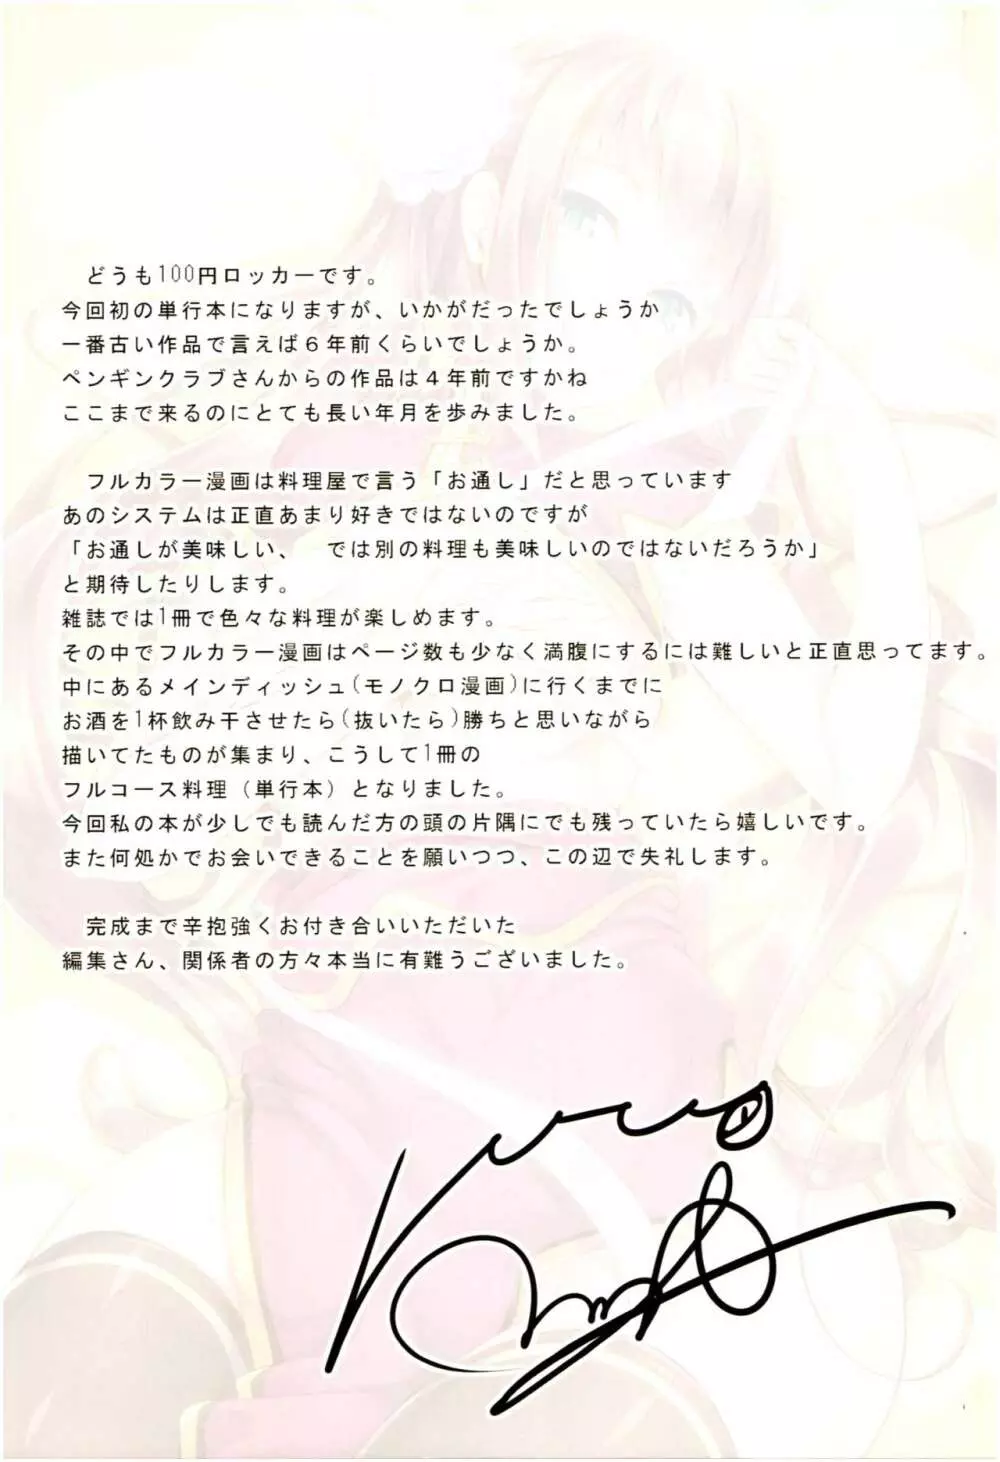 どうも100円ロッカーです。
今回初の単行本になりますが、いかがだったでしょうか
一番古い作品で言えば６年前くらいでしょうか。
ペンギンクラブさんからの作品は４年前ですかね
ここまで来るのにとても長い年月を歩みました。
フルカラー漫画は料理屋で言う「お通し」だと思っています
あのシステムは正直あまり好きではないのですが
「お通しが美味しい、　では別の料理も美味しいのではないだろうか」
と期待したりします。
雑誌では1冊で色々な料理が楽しめます。
その中でフルカラー漫画はページ数も少なく満腹にするには難しいと正直思ってます。
中にあるメインディッシュ(モノクロ漫画)に行くまでに
お酒を1杯飲み干させたら(抜いたら)勝ちと思いながら
描いてたものが集まり、こうして1冊の
フルコース料理（単行本）となりました。
今回私の本が少しでも読んだ方の頭の片隅にでも残っていたら嬉しいです。
また何処かでお会いできることを願いつつ、この辺で失礼します。
完成まで辛抱強くお付き合いいただいた
編集さん、関係者の方々本当に有難うございました。